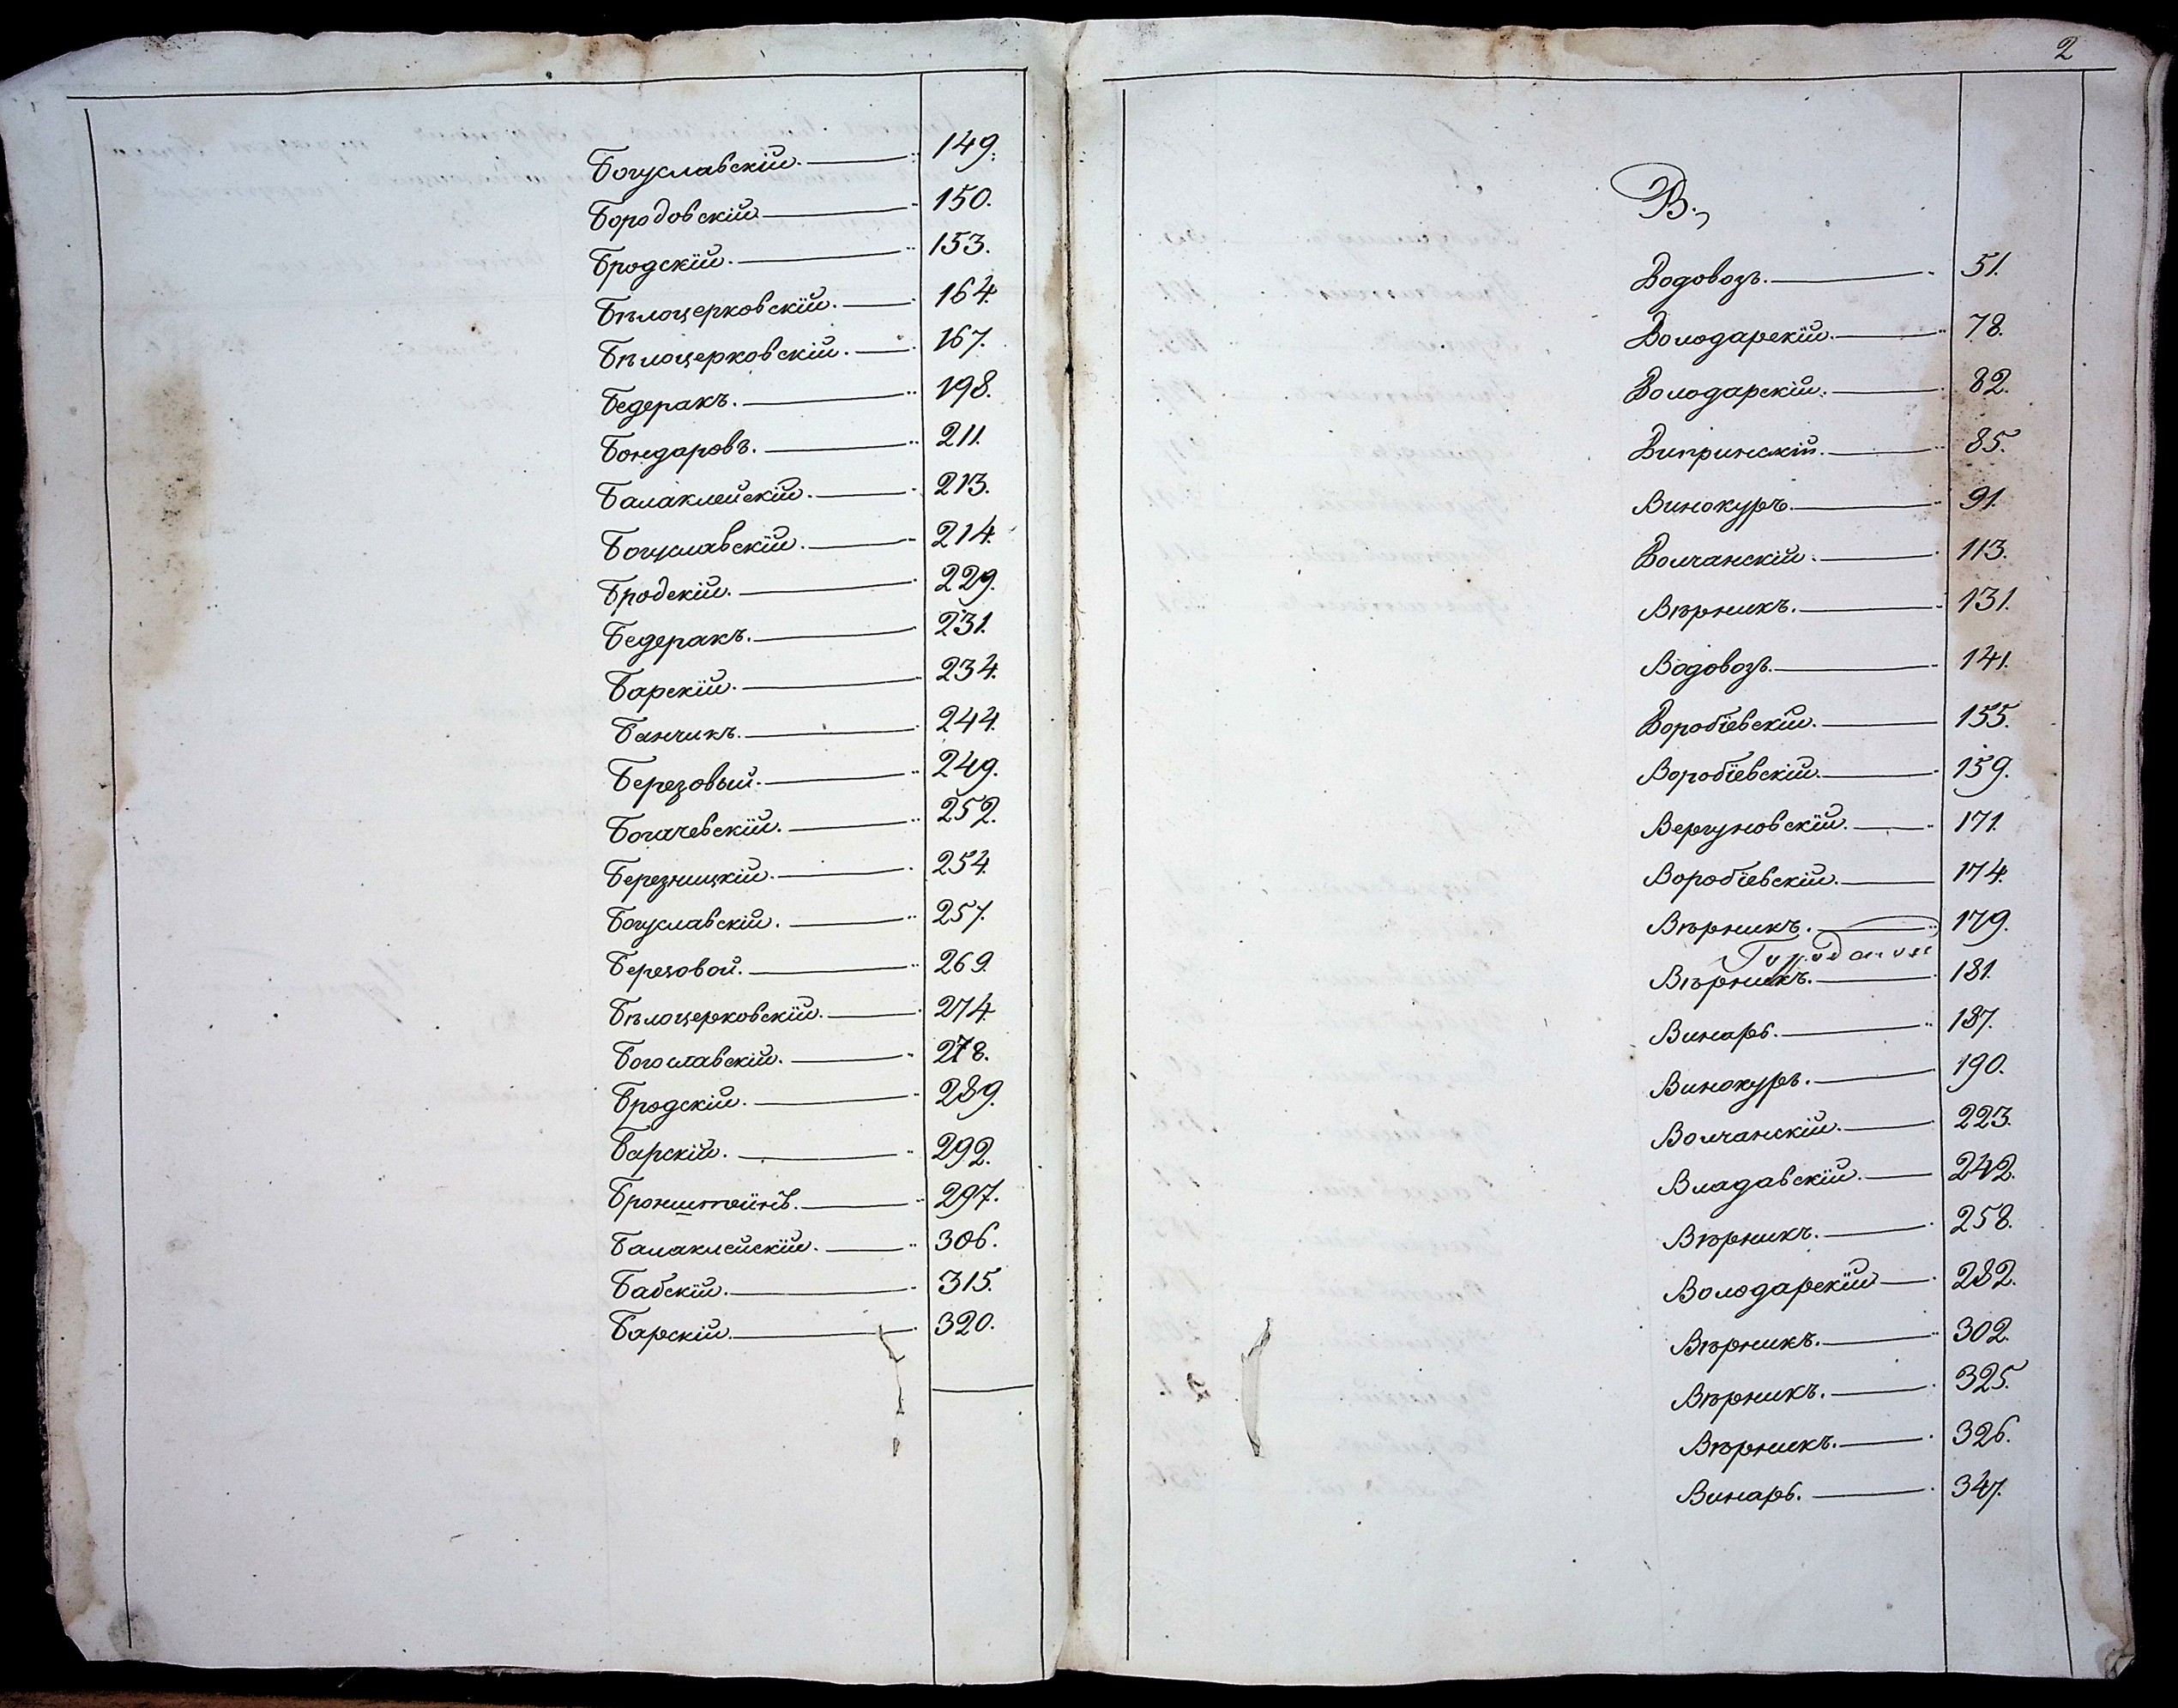 Богуславскій. 149.
Бородовскій. 150.
Бродскій. 153.
Бѣлоцерковскій. 164.
Бѣлоцерковскій. 167.
Бедеракъ. 198.
Бондаровъ. 211.
Балаклейскій. 213.
Богуславскій. 214.
Бродскій. 229.
Бедеракъ. 231.
Барскій. 234.
Банчикъ. 244.
Березовый. 249.
Богачевскій. 252.
Березницкій. 254.
Богуславскій. 257.
Березовой. 269.
Бѣлоцерковскій. 274.
Богославскій. 278.
Бродскій. 289.
Барскій. 292.
Бронштейнъ. 297.
Балаклейскій. 306.
Бабскій. 315.
Барскій. 320.
2
В.
Водовозъ. 51.
Володарскій. 78.
Володарскій. 82.
Випринскій. 85.
Винокуръ. 91.
Волчанскій. 113.
Вѣрникъ. 131.
Водовозъ. 141.
Воробіевскій. 155.
Воробіевскій. 159.
Вергуновскій. 171.
Воробіевскій. 174.
Вѣрникъ. 179.
Вѣрникъ. 181.
Винарь. 187.
Винокуръ. 190.
Волчанскій. 223.
Владавскій. 242.
Вѣрникъ. 258.
Володарскій 282.
Вѣрникъ. 302.
Вѣрникъ. 325.
Вѣрникъ. 326.
Винарь. 347.